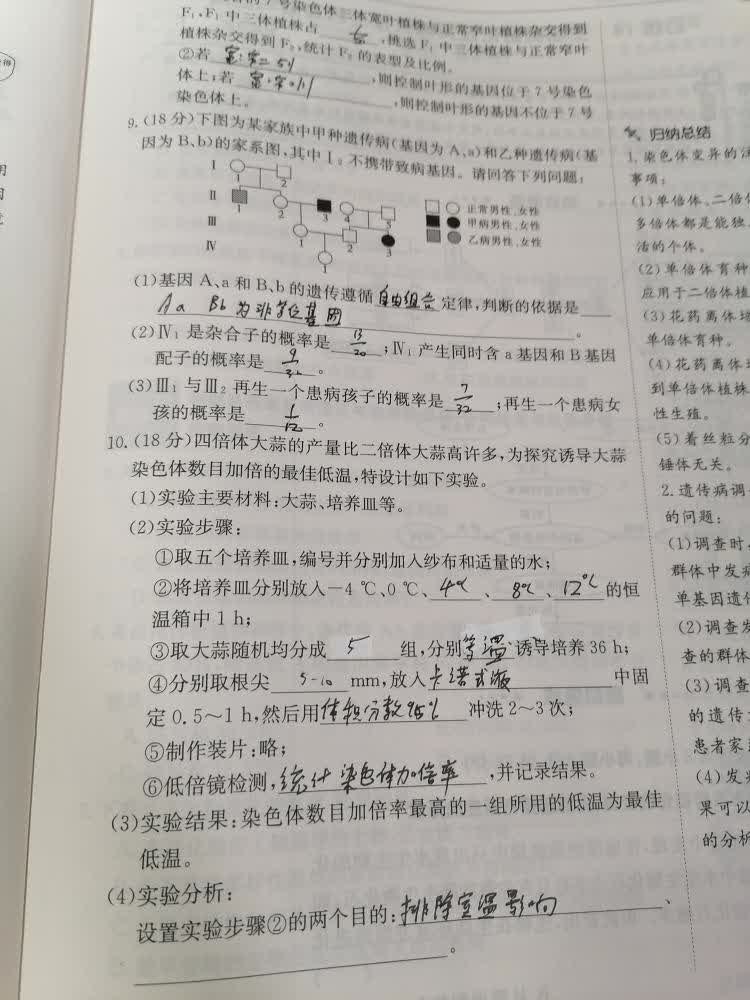 号染色体三体宽叶植株与正常窄叶植株杂交得到
F₁,F₁ 中三体植株占,挑选 F₁ 中三体植株与正常窄叶
植株杂交得到 F₂,统计 F₂ 的表型及比例。
②若 宽:窄=5:1,则控制叶形的基因位于 7 号染色
体上;若 宽:窄=1:1,则控制叶形的基因不位于 7 号
染色体上。
9.(18 分)下图为某家族中甲种遗传病(基因为 A、a)和乙种遗传病(基
因为 B、b)的家系图,其中Ⅰ₂ 不携带致病基因。请回答下列问题:
Ⅰ 1 2
Ⅱ 1 2 3 4 5
Ⅲ 1 2 3
Ⅳ 1
正常男性、女性
甲病男性、女性
乙病男性、女性
(1)基因 A、a 和 B、b 的遗传遵循 自由组合 定律,判断的依据是
Aa Bb 为非等位基因。
(2)Ⅳ₁ 是杂合子的概率是 13/20;Ⅳ₁ 产生同时含 a 基因和 B 基因
配子的概率是 9/32。
(3)Ⅲ₁ 与Ⅲ₂ 再生一个患病孩子的概率是 7/32;再生一个患病女
孩的概率是 1/12。
10.(18 分)四倍体大蒜的产量比二倍体大蒜高许多,为探究诱导大蒜
染色体数目加倍的最佳低温,特设计如下实验。
(1)实验主要材料:大蒜、培养皿等。
(2)实验步骤:
①取五个培养皿,编号并分别加入纱布和适量的水;
②将培养皿分别放入-4 ℃、0 ℃、4℃、8℃、12℃的恒
温箱中 1 h;
③取大蒜随机均分成 5 组,分别 等温 诱导培养 36 h;
④分别取根尖 5-10 mm,放入 卡诺氏液 中固
定 0.5～1 h,然后用 体积分数95% 冲洗 2～3 次;
⑤制作装片:略;
⑥低倍镜检测,统计染色体加倍率,并记录结果。
(3)实验结果:染色体数目加倍率最高的一组所用的低温为最佳
低温。
(4)实验分析:
设置实验步骤②的两个目的:排除室温影响、
。
归纳总结
1.染色体变异的注
事项:
(1)单倍体、二倍体
多倍体都是能独
活的个体。
(2)单倍体育种
应用于二倍体植
(3)花药离体培
单倍体育种。
(4)花药离体
到单倍体植株
性生殖。
(5)着丝粒分
锤体无关。
2.遗传病调
的问题:
(1)调查时,
群体中发病
单基因遗传
(2)调查发
查的群体
(3)调查
的遗传
患者家
(4)发
果可以
的分析